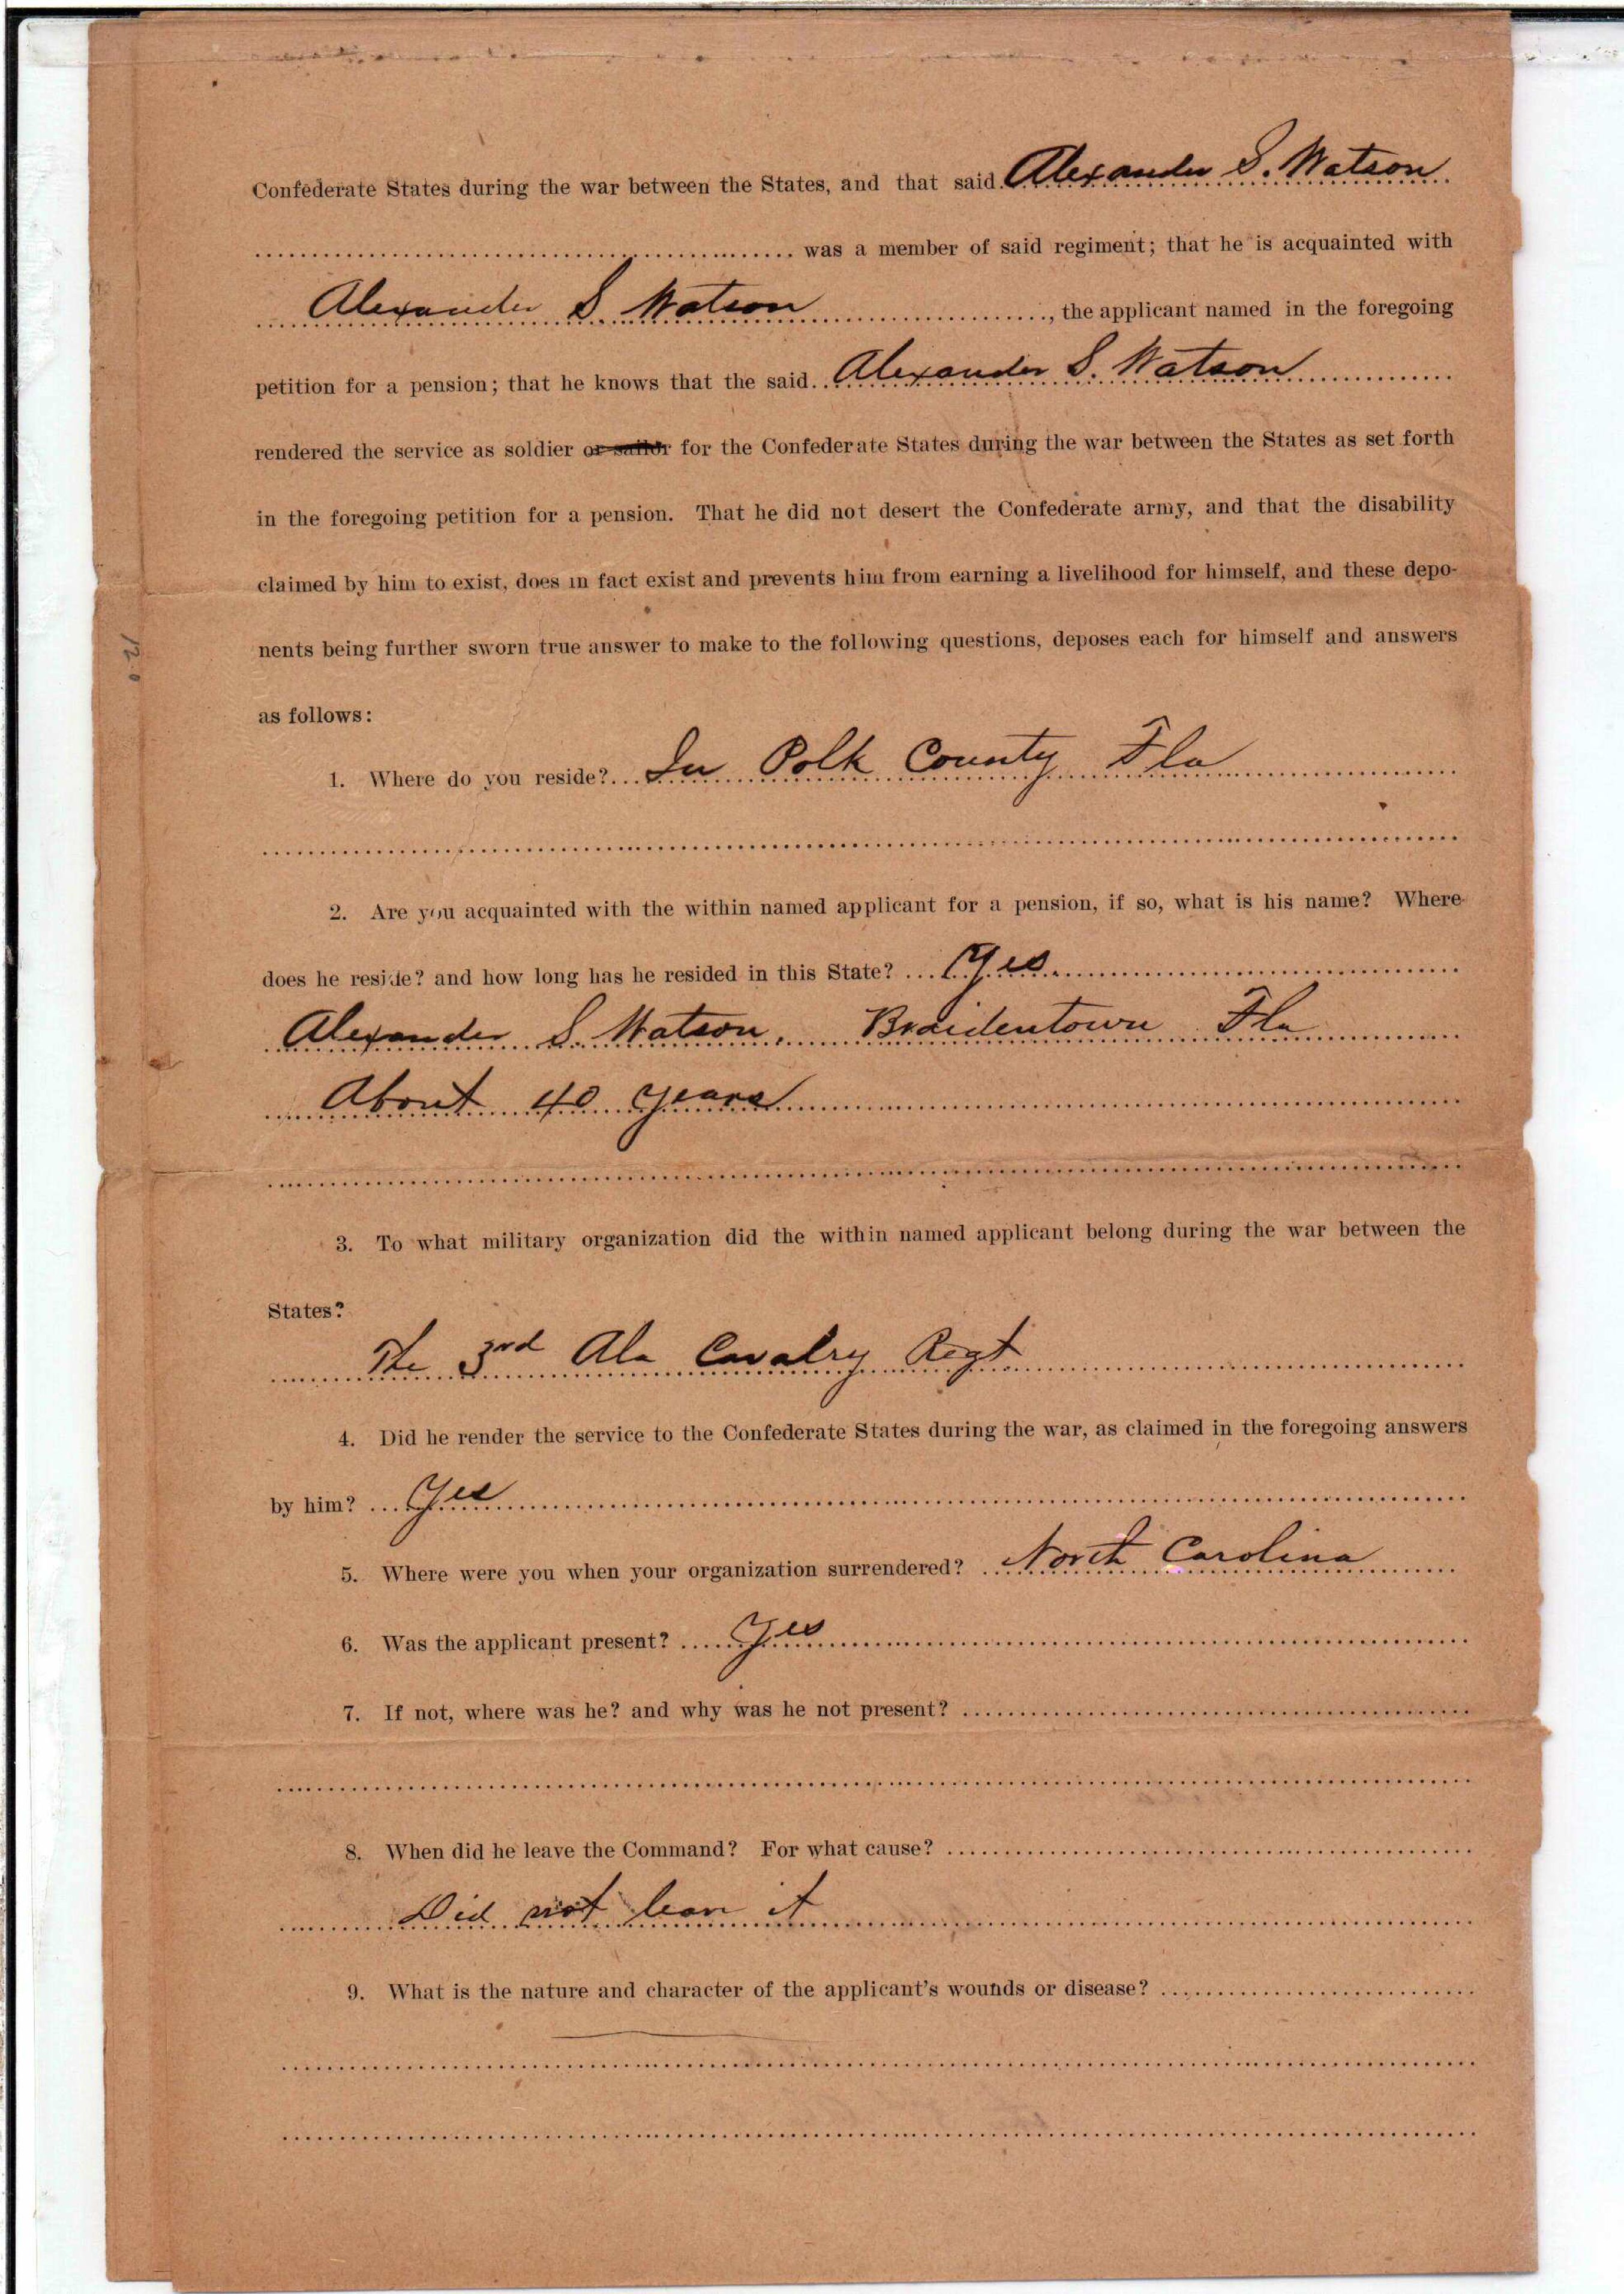 Confederate States during the war between the States, and that said Alexander S. Watson
was a member of said regiment; that he is acquainted with
Alexander S Watson, the applicant named in the foregoing
petition for a pension; that he knows that the said Alexander S. Watson
rendered the service as soldier or sailor for the Confederate States during the war between the States as set forth
in the foregoing petition for a pension. That he did not desert the Confederate army, and that the disability
claimed by him to exist, does in fact exist and prevents him from earning a livelihood for himself, and these depo-
nents being further sworn true answer to make to the following questions, deposes each for himself and answers
as follows:
1. Where do you reside? In Polk County Fla
2. Are you acquainted with the within named applicant for a pension, if so, what is his name? Where
does he reside? and how long has he resided in this State? Yes
Alexander S. Watson, Braidentown Fla
About 40 years
3. To what military organization did the within named applicant belong during the war between the
States?
The 3rd Ala Cavalry Regt
4. Did he render the service to the Confederate States during the war, as claimed in the foregoing answers
by him? Yes
5. Where were you when your organization surrendered? North Carolina
6. Was the applicant present? Yes
7. If not, where was he? and why was he not present?
8. When did he leave the Command? For what cause?
Did not leav it
9. What is the nature and character of the applicant's wounds or disease?